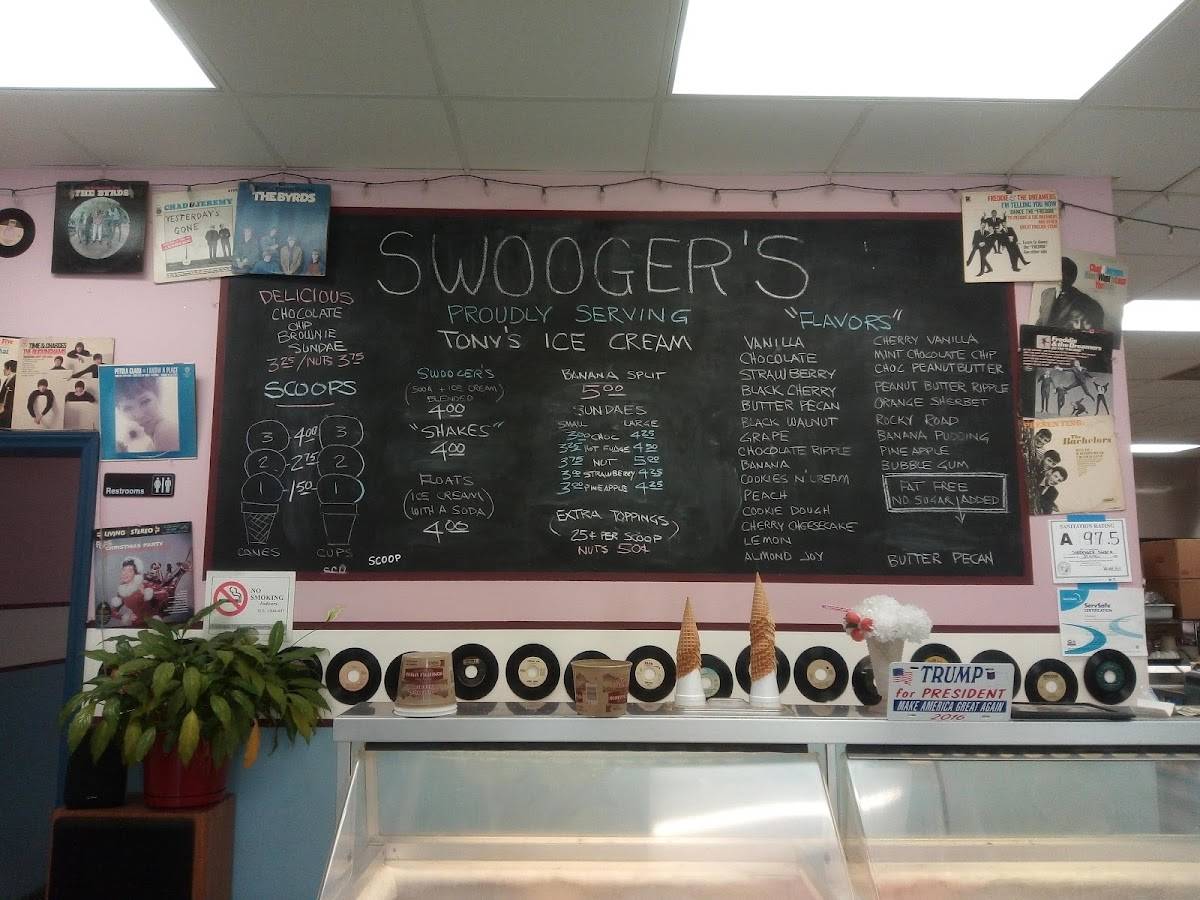 THE BYRDS
CHAD & JEREMY
YESTERDAY'S
GONE
THE BYRDS
FREDDIE & THE DREAMERS
I'M TELLING YOU NOW
TIME & CHARGES
THE BUCKINGHAMS
PETULA CLARK • I KNOW A PLACE
Restrooms
LIVING STEREO
CHRISTMAS PARTY
Freddie
& the Dreamers
The
Bachelors
SWOOGER'S
PROUDLY SERVING
TONY'S ICE CREAM
DELICIOUS
CHOCOLATE
CHIP
BROWNIE
SUNDAE
3.25 / NUTS 3.75
SCOOPS
3 - 4.00 3
2 - 2.75 2
1 - 1.50 1
CONES CUPS
SCOOP
SWOOGER'S
(SODA + ICE CREAM)
BLENDED
4.00
"SHAKES"
4.00
FLOATS
(ICE CREAM)
(WITH A SODA)
4.00
BANANA SPLIT
5.00
SUNDAES
SMALL LARGE
CHOC 4.25
HOT FUDGE 4.50
3.75 NUT 5.00
STRAWBERRY 4.25
PINEAPPLE 4.25
(EXTRA TOPPINGS)
25¢ PER SCOOP
NUTS 50¢
"FLAVORS"
VANILLA
CHOCOLATE
STRAWBERRY
BLACK CHERRY
BUTTER PECAN
BLACK WALNUT
GRAPE
CHOCOLATE RIPPLE
BANANA
COOKIES N' CREAM
PEACH
COOKIE DOUGH
CHERRY CHEESECAKE
LEMON
ALMOND JOY
CHERRY VANILLA
MINT CHOCOLATE CHIP
CHOC PEANUT BUTTER
PEANUT BUTTER RIPPLE
ORANGE SHERBET
ROCKY ROAD
BANANA PUDDING
PINEAPPLE
BUBBLE GUM
FAT FREE
NO SUGAR ADDED
BUTTER PECAN
NO
SMOKING
SANITATION RATING
A 97.5
ServSafe
CERTIFICATION
TRUMP
for PRESIDENT
MAKE AMERICA GREAT AGAIN
2016